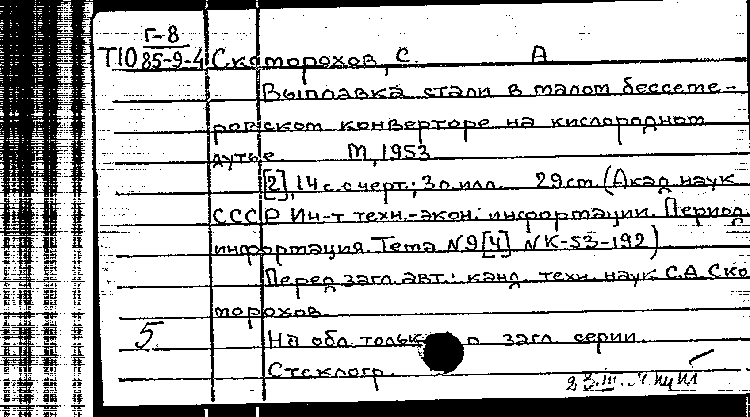 Г-8
Т10 85-9-4 Скоморохов, С. А
Выплавка стали в малом бессеме-
ровском конверторе на кислородном
дутье. М, 1953
[2], 14 с. с черт.; 3 л. илл. 29 см. (Акад. наук
СССР Ин-т техн.-экон. информации. Период.
информация. Тема N 9 [4] N К-53-192)
Перед загл. авт.: канд. техн. наук С.А. Ско
морохов.
5 На обл. только загл. серии.
Стеклогр.
23.III.